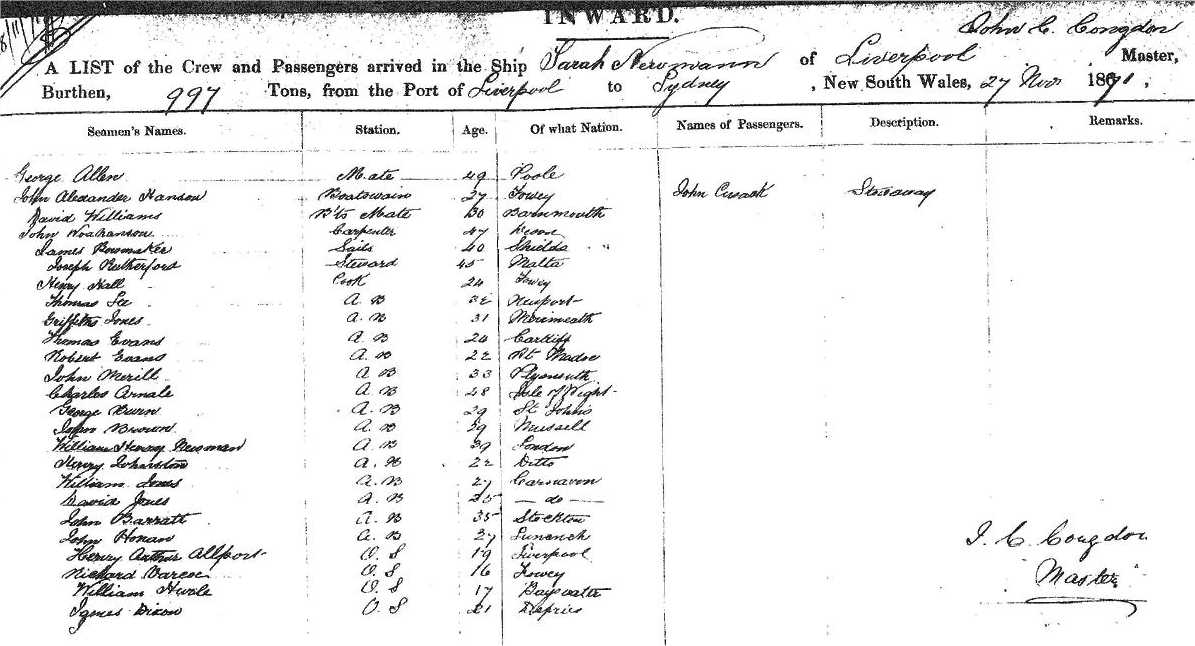 INWARD.
John C. Congdon
A LIST of the Crew and Passengers arrived in the Ship Sarah Newmann of Liverpool Master,
Burthen, 997 Tons, from the Port of Liverpool to Sydney , New South Wales, 27 Novr 1871,
Seamen's Names. Station. Age. Of what Nation. Names of Passengers. Description. Remarks.
George Allen Mate 49 Poole
John Alexander Hanson Boatswain 27 Fowey John Cusack Stowaway
David Williams B'ts Mate 30 Barnmouth
John Carpenter 47
James Bowmaker Sails 40 Shields
Joseph Rutherford Steward 45 Malta
Henry Hall Cook 24 Fowey
Thomas Lee A. B 32 Newport
Griffiths Jones A. B 31
Thomas Evans A B 24 Cardiff
Robert Evans A. B 22 Pt Madoc
John Merill A B 33 Plymouth
Charles Arnale A. B 28 Isle of Wight
George Burn A. B 29 St Johns
John Brown A B 39 Mussell
William Henry Newman A. B 39 London
Henry Johnston A. B 22 Ditto
William Jones A. B 27 Carnavon
David Jones A. B 25 — do —
John Barratt A. B 35 Stockton
John Honan A. B 27
Henry Arthur Allport O. S 19 Liverpool
Richard Barcoe O. S 16 Fowey
William O. S 17 Bayswater
James Dixon O. S 21
J. C. Congdon
Master